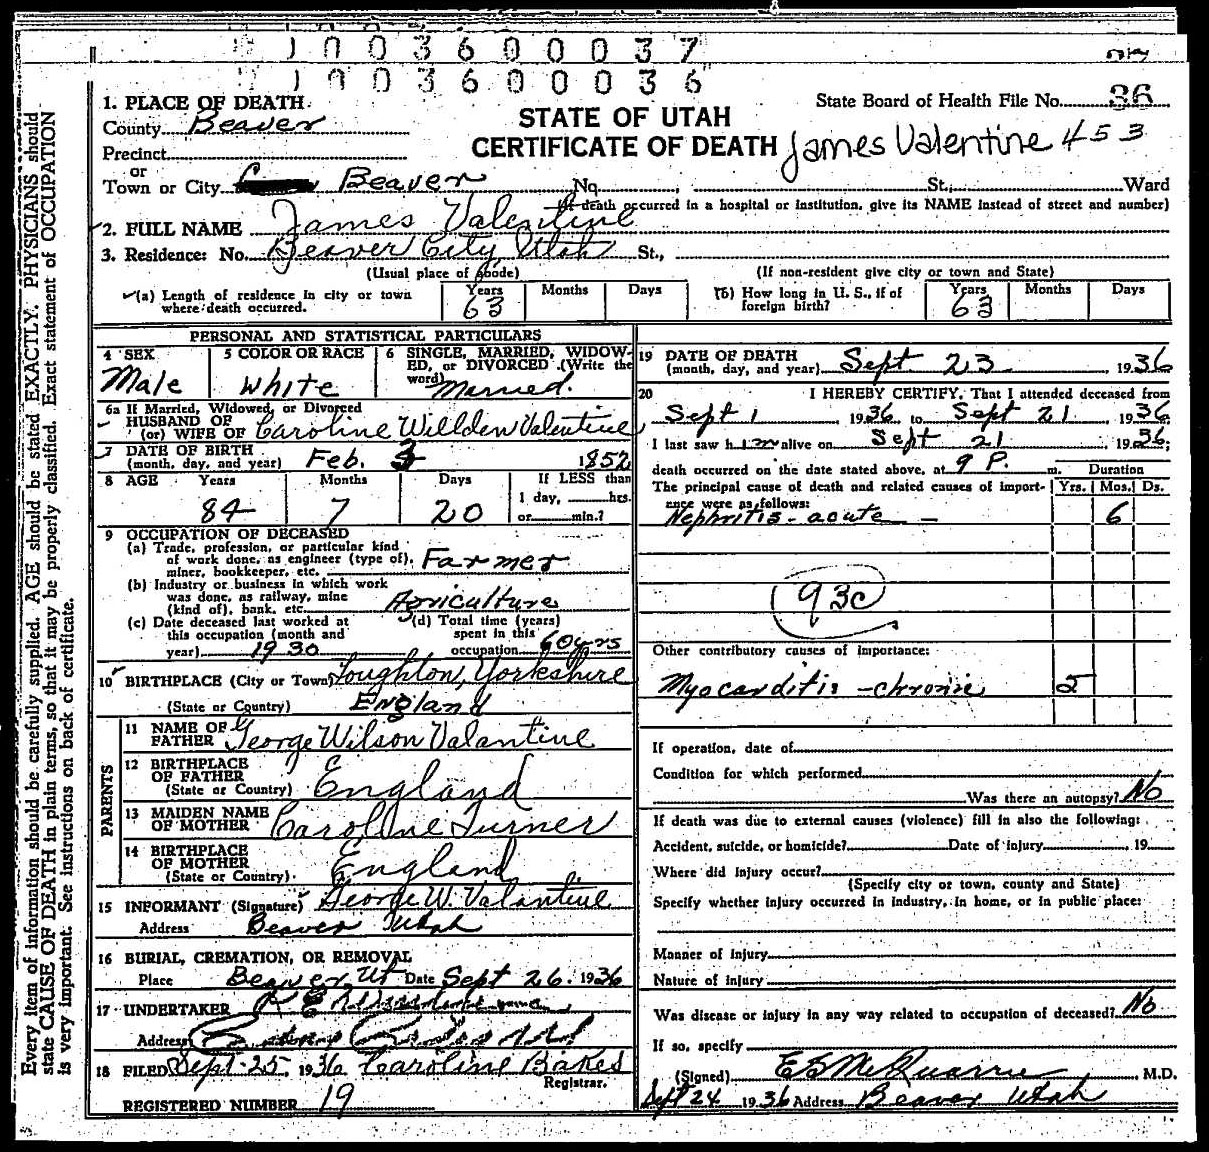 1003600037
1003600036
1. PLACE OF DEATH
County Beaver
STATE OF UTAH
CERTIFICATE OF DEATH
State Board of Health File No. 36
James Valentine 453
Precinct
or
Town or City Beaver No. St., Ward
(If death occurred in a hospital or institution, give its NAME instead of street and number)
2. FULL NAME James Valentine
3. Residence: No. Beaver City Utah St.,
(Usual place of abode) (If non-resident give city or town and State)
(a) Length of residence in city or town where death occurred. Years 63 Months Days (b) How long in U. S., if of foreign birth? Years 63 Months Days
PERSONAL AND STATISTICAL PARTICULARS
4 SEX Male
5 COLOR OR RACE White
6 SINGLE, MARRIED, WIDOWED, or DIVORCED (Write the word) Married.
6a If Married, Widowed, or Divorced
HUSBAND OF
(or) WIFE OF Caroline Willden Valentine
7 DATE OF BIRTH
(month, day, and year) Feb. 3 1852
8 AGE Years 84 Months 7 Days 20 If LESS than 1 day, hrs. or min.?
9 OCCUPATION OF DECEASED
(a) Trade, profession, or particular kind
of work done, as engineer (type of),
miner, bookkeeper, etc. Farmer
(b) Industry or business in which work
was done, as railway, mine
(kind of), bank, etc. Agriculture
(c) Date deceased last worked at
this occupation (month and
year) 1930
(d) Total time (years)
spent in this
occupation 60 yrs
10 BIRTHPLACE (City or Town) Loughton, Yorkshire
(State or Country) England
PARENTS
11 NAME OF FATHER George Wilson Valantine
12 BIRTHPLACE OF FATHER
(State or Country) England
13 MAIDEN NAME OF MOTHER Caroline Turner
14 BIRTHPLACE OF MOTHER
(State or Country) England
15 INFORMANT (Signature) George W. Valantine
Address Beaver Utah
16 BURIAL, CREMATION, OR REMOVAL
Place Beaver, Ut Date Sept 26. 1936
17 UNDERTAKER
Address
18 FILED Sept-25. 1936 Caroline Bakes
Registrar.
REGISTERED NUMBER 19
19 DATE OF DEATH
(month, day, and year) Sept. 23 1936
20 I HEREBY CERTIFY, That I attended deceased from
Sept 1 1936 to Sept 21 1936
I last saw him alive on Sept 21 1936;
death occurred on the date stated above, at 9 P. m. Duration
The principal cause of death and related causes of importance were as follows: Yrs. Mos. Ds.
Nephritis - acute - 6
93c
Other contributory causes of importance:
Myocarditis - chronic 5
If operation, date of
Condition for which performed
Was there an autopsy? No
If death was due to external causes (violence) fill in also the following:
Accident, suicide, or homicide? Date of injury 19
Where did injury occur?
(Specify city or town, county and State)
Specify whether injury occurred in industry, in home, or in public place:
Manner of injury
Nature of injury
Was disease or injury in any way related to occupation of deceased? No
If so, specify
(Signed) E S McQuarrie M.D.
Sept 24 1936 Address Beaver Utah
Every item of information should be carefully supplied. AGE should be stated EXACTLY. PHYSICIANS should
state CAUSE OF DEATH in plain terms, so that it may be properly classified. Exact statement of OCCUPATION
is very important. See instructions on back of certificate.